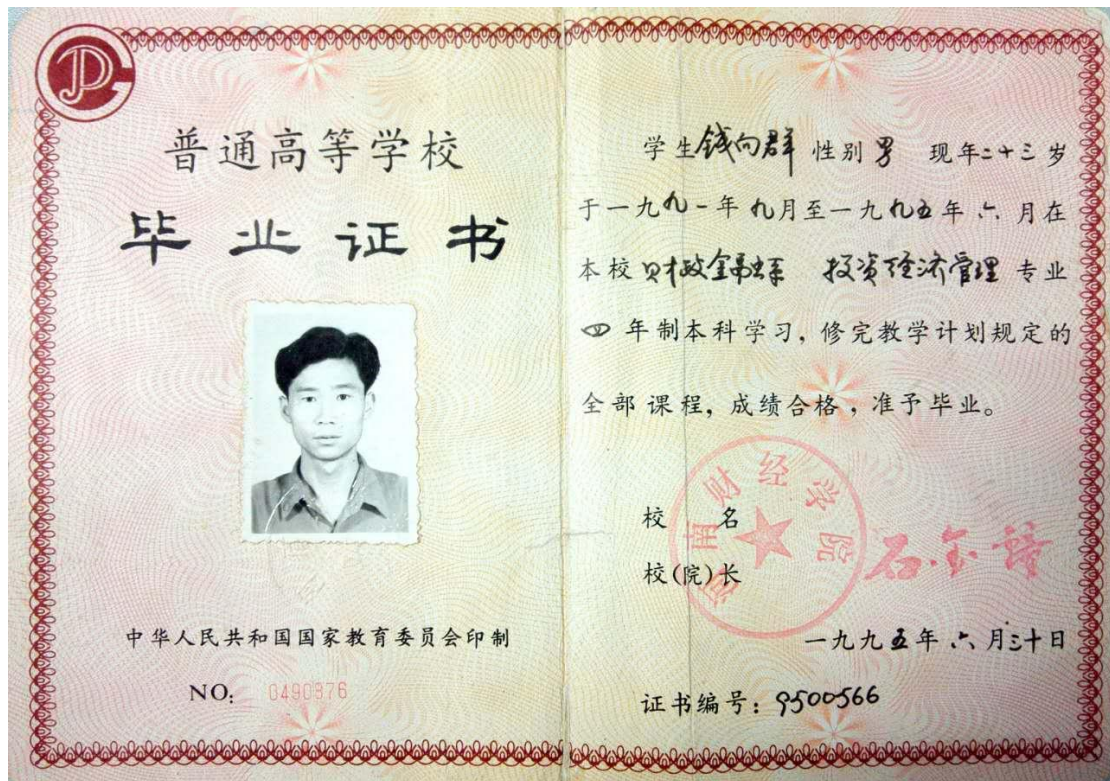 普通高等学校
毕业证书
中华人民共和国国家教育委员会印制
NO: 0490376
学生钱向群 性别男 现年二十三岁
于一九九一年九月至一九九五年六月在
本校财政金融系 投资经济管理专业
四年制本科学习，修完教学计划规定的
全部课程，成绩合格，准予毕业。
南财经学院
校名
校(院)长
一九九五年六月三十日
证书编号：9500566